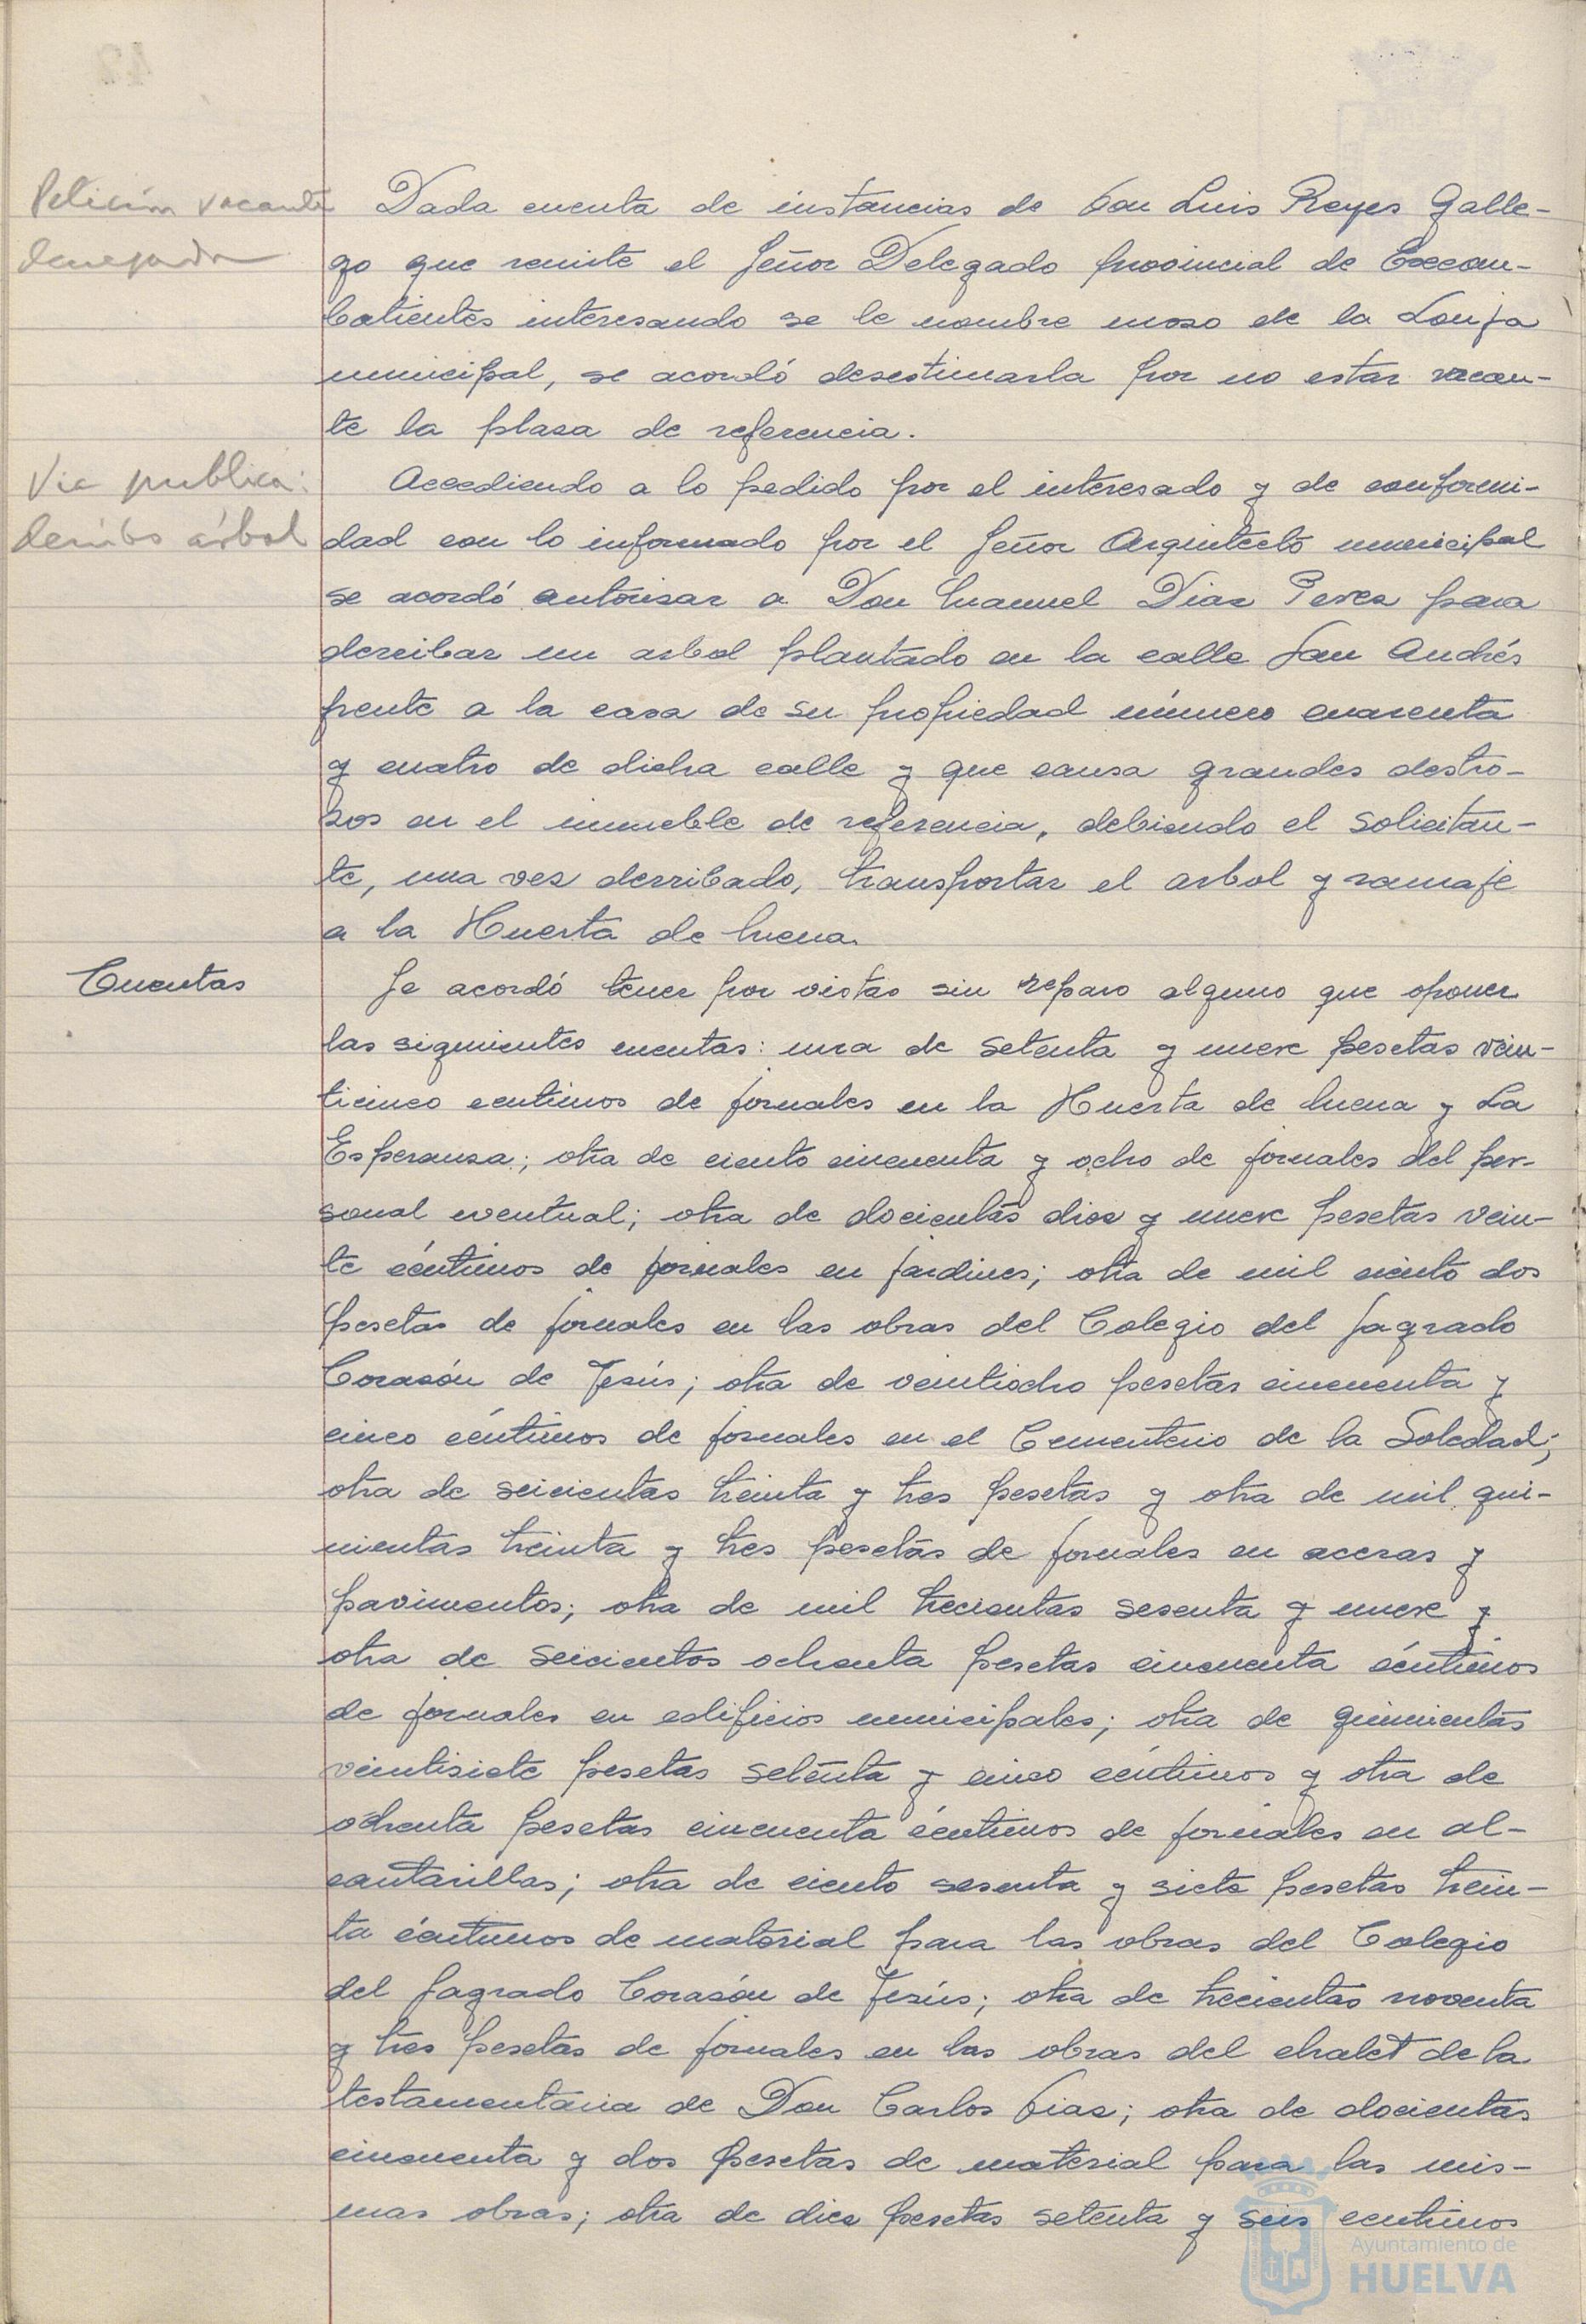 Petición vacante
denegada
Dada cuenta de instancias de Don Luis Reyes Galle-
go que remite el Señor Delegado provincial de Excom-
batientes interesando se le nombre moso de la Lonja
municipal, se acordó desestimarla por no estar vacan-
te la plasa de referencia.
Vía publica:
derribo árbol
Accediendo a lo pedido por el interesado y de conformi-
dad con lo informado por el Señor Arquitecto municipal
se acordó autorisar a Don Manuel Dias Peres para
derribar un arbol plantado en la calle San Andrés
frente a la casa de su propiedad número cuarenta
y cuatro de dicha calle y que causa grandes destro-
sos en el inmueble de referencia, debiendo el solicitan-
te, una ves derribado, transportar el arbol y ramaje
a la Huerta de Mena.
Cuentas
Se acordó tener por vistas sin reparo alguno que oponer
las siguientes cuentas: una de setenta y nueve pesetas vein-
ticinco centimos de jornales en la Huerta de Mena y La
Esperansa; otra de ciento cincuenta y ocho de jornales del per-
sonal eventual; otra de docientas dies y nueve pesetas vein-
te céntimos de jornales en jardines; otra de mil ciento dos
pesetas de jornales en las obras del Colegio del Sagrado
Corasón de Jesús; otra de veintiocho pesetas cincuenta y
cinco céntimos de jornales en el Cementerio de la Soledad;
otra de seicientas treinta y tres pesetas y otra de mil qui-
nientas treinta y tres pesetas de jornales en aceras y
pavimentos; otra de mil trecientas sesenta y nueve y
otra de seicientos ochenta pesetas cincuenta céntimos
de jornales en edificios municipales; otra de quinientas
veintisiete pesetas setenta y cinco céntimos y otra de
ochenta pesetas cincuenta céntimos de jornales en al-
cantarillas; otra de ciento sesenta y siete pesetas trein-
ta céntimos de material para las obras del Colegio
del Sagrado Corasón de Jesús; otra de trecientas noventa
y tres pesetas de jornales en las obras del chalet de la
testamentaria de Don Carlos Dias; otra de docientas
cincuenta y dos pesetas de material para las mis-
mas obras; otra de dies pesetas setenta y seis centimos
Ayuntamiento de
HUELVA